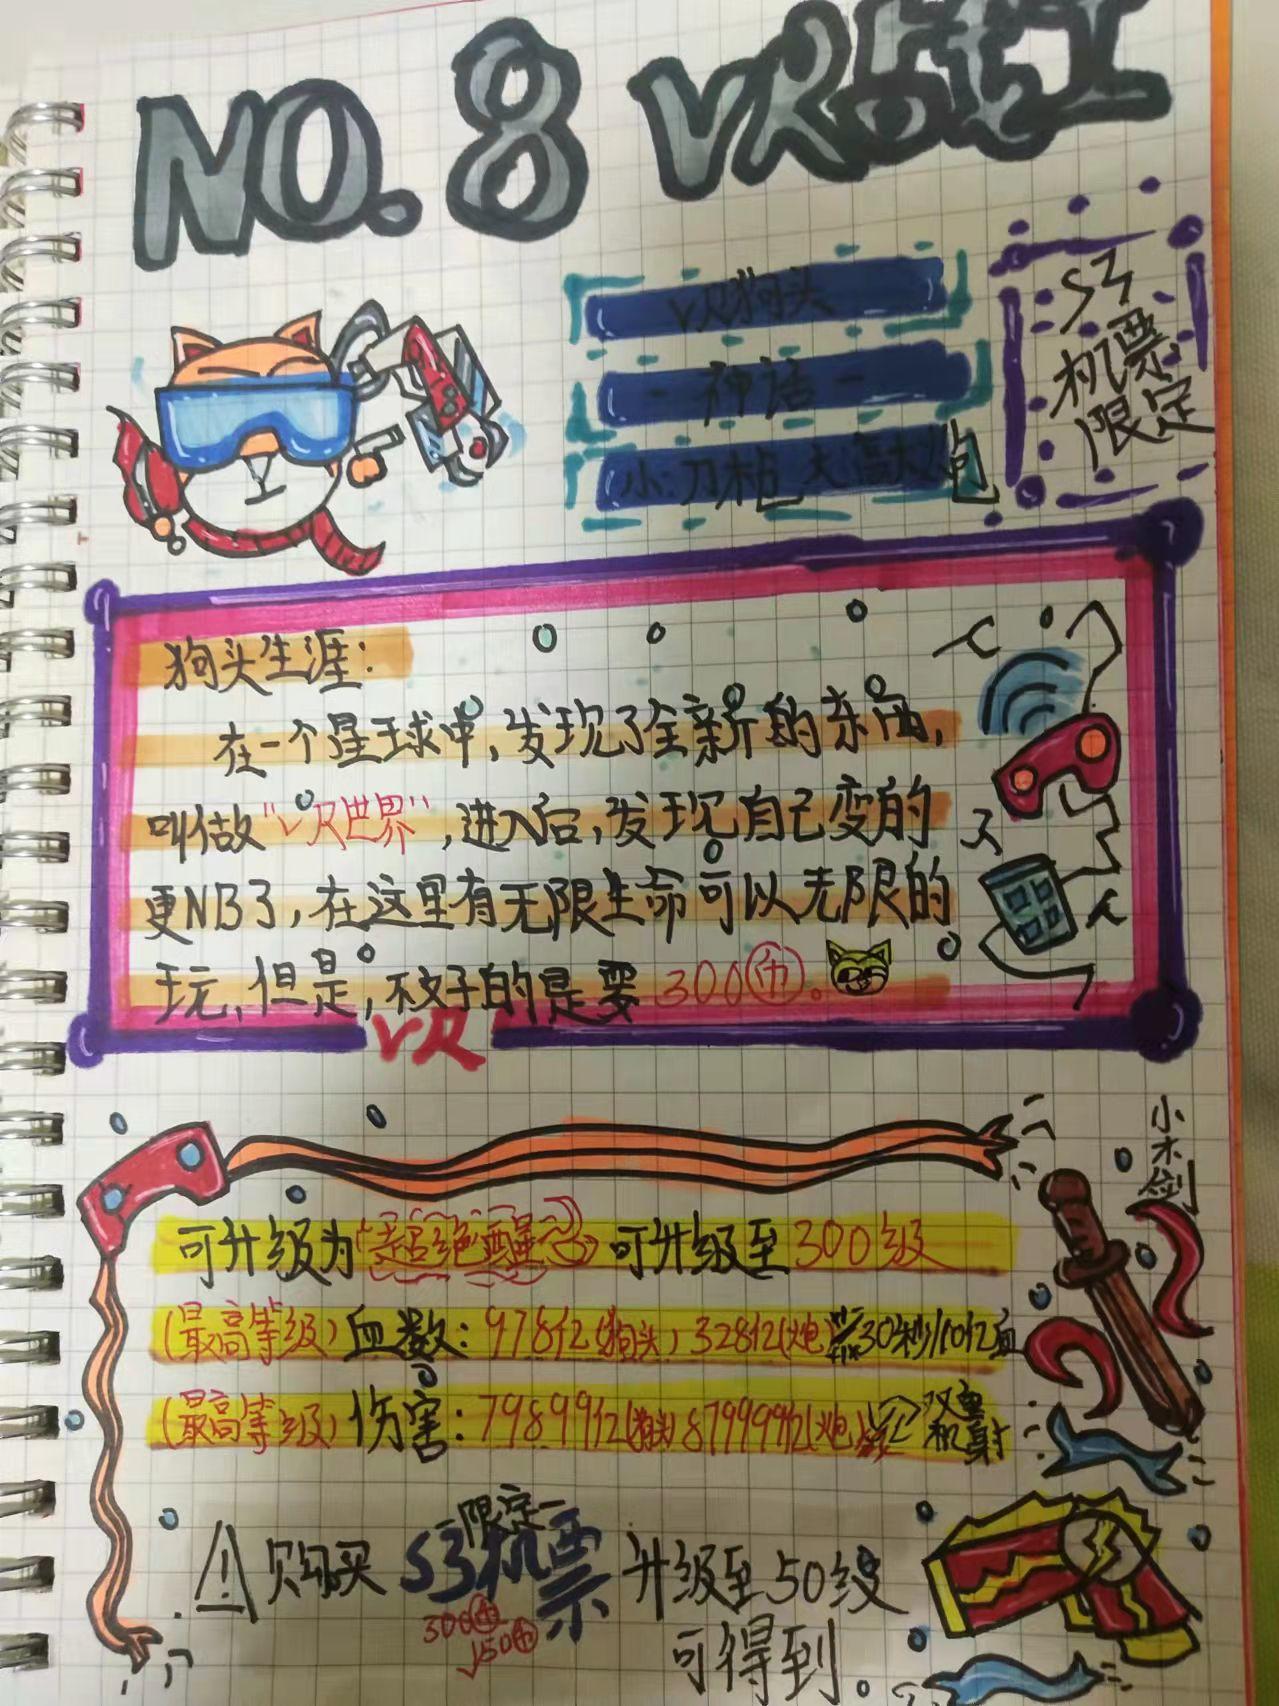 NO.8 VR
VR狗头
-神话-
S3
机票
限定
狗头生涯:
在一个星球中,发现了全新的东西,
叫做"VR世界",进入后,发现自己变的
更NB了,在这里有无限生命可以无限的
玩,但是,不好的是要300币。
VR
小木剑
可升级为超绝醒 可升级至300级
(最高等级)血数:978亿(狗头)328亿(炮) 30秒/10亿血
(最高等级)伤害:79899亿(狗头)879999亿(炮) 双重机射
购买 S3机票 升级至50级
限定
300币
150币
可得到。